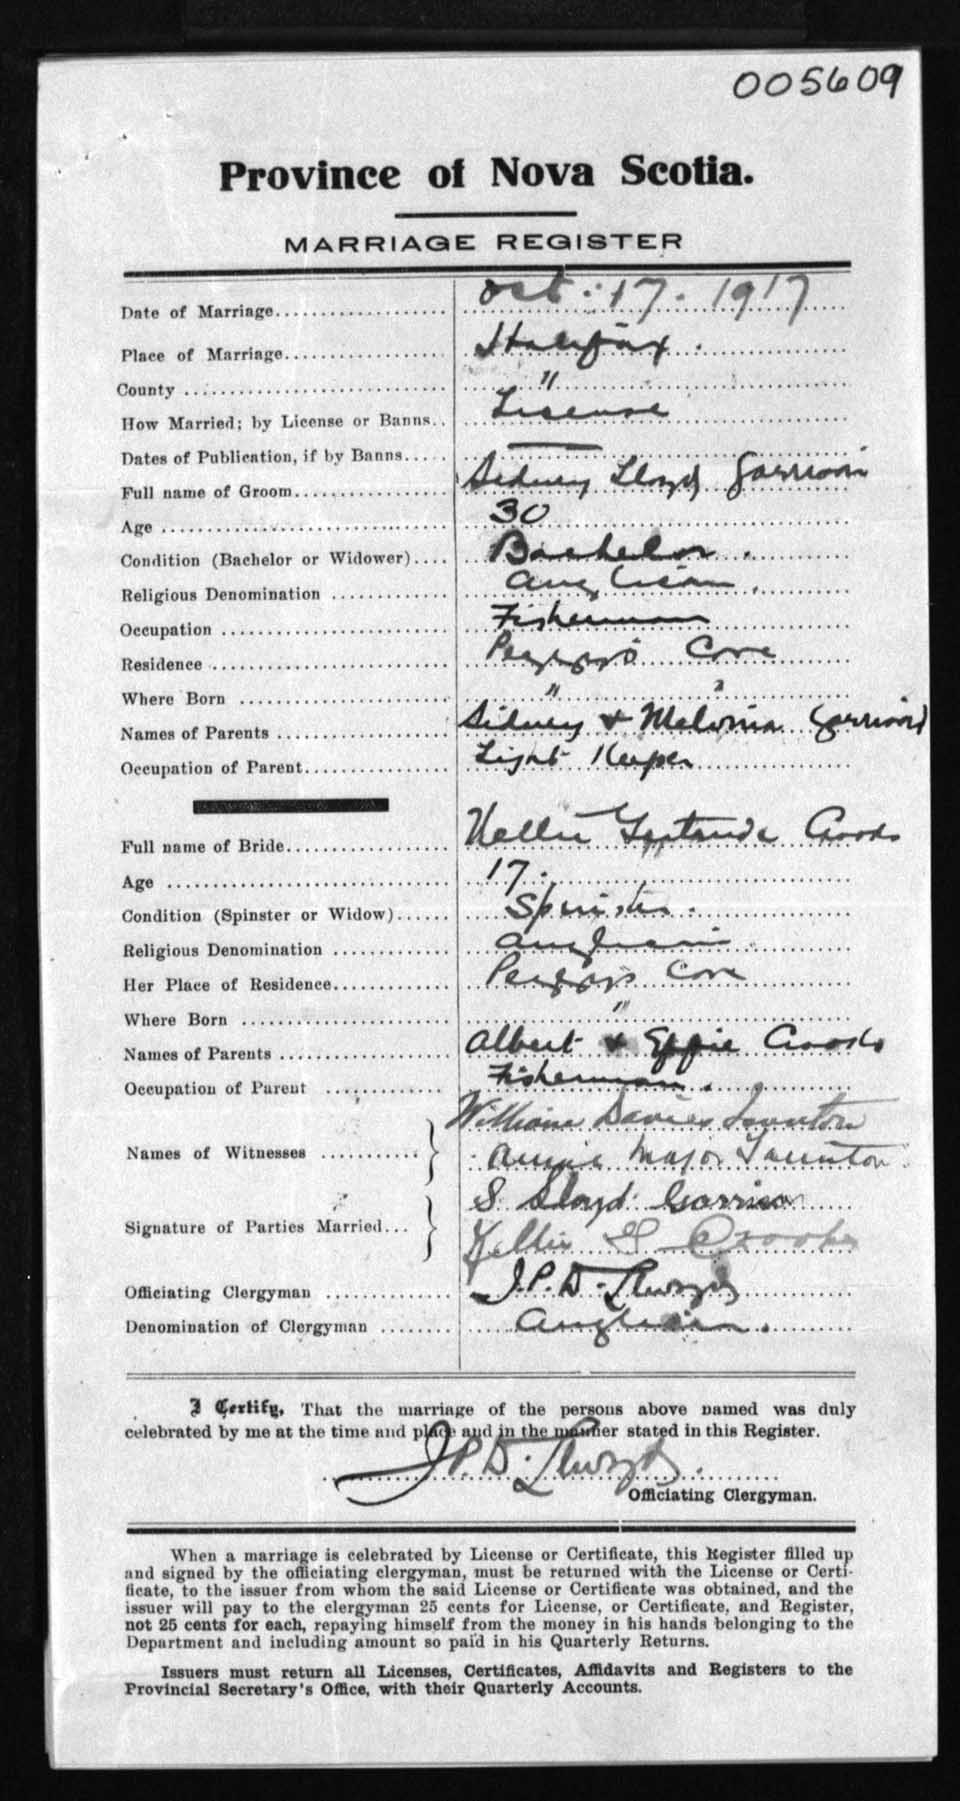 005609
Province of Nova Scotia.
MARRIAGE REGISTER
Date of Marriage Oct. 17. 1917
Place of Marriage Halifax.
County "
How Married; by License or Banns License
Dates of Publication, if by Banns —
Full name of Groom Sidney Lloyd Garrison
Age 30
Condition (Bachelor or Widower) Bachelor.
Religious Denomination Anglican.
Occupation Fisherman
Residence Peggy's Cove
Where Born " "
Names of Parents Sidney & Melvina Garrison
Occupation of Parent Light Keeper
Full name of Bride Nellie Gertrude Crooks
Age 17.
Condition (Spinster or Widow) Spinster.
Religious Denomination Anglican
Her Place of Residence Peggy's Cove
Where Born "
Names of Parents Albert & Effie Crooks
Occupation of Parent Fisherman.
Names of Witnesses William Davies Taunton
Annie Major Taunton.
Signature of Parties Married S. Lloyd Garrison
Nellie G Crooks
Officiating Clergyman J.P.D. Llwyd
Denomination of Clergyman Anglican.
I Certify, That the marriage of the persons above named was duly
celebrated by me at the time and place and in the manner stated in this Register.
J.P.D. Llwyd.
Officiating Clergyman.
When a marriage is celebrated by License or Certificate, this Register filled up
and signed by the officiating clergyman, must be returned with the License or Certi-
ficate, to the issuer from whom the said License or Certificate was obtained, and the
issuer will pay to the clergyman 25 cents for License, or Certificate, and Register,
not 25 cents for each, repaying himself from the money in his hands belonging to the
Department and including amount so paid in his Quarterly Returns.
Issuers must return all Licenses, Certificates, Affidavits and Registers to the
Provincial Secretary's Office, with their Quarterly Accounts.